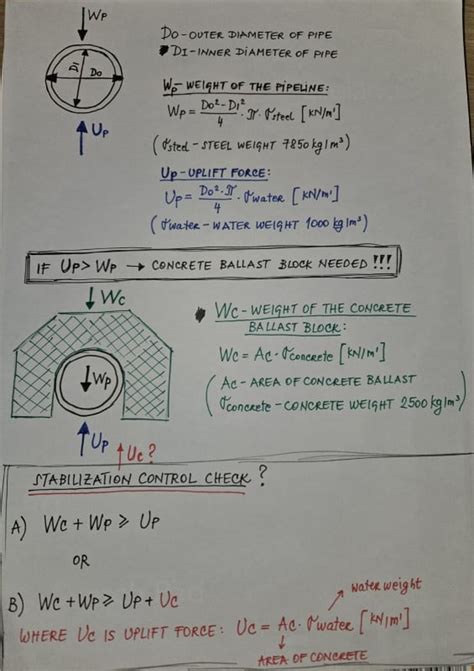 WP
DO - OUTER DIAMETER OF PIPE
DI - INNER DIAMETER OF PIPE
DI
DO
UP
WP - WEIGHT OF THE PIPELINE:
WP = (DO² - DI²)/4 · π · σsteel [kN/m']
(σsteel - STEEL WEIGHT 7850 kg/m³)
UP - UPLIFT FORCE:
UP = (DO² · π)/4 · σwater [kN/m']
(σwater - WATER WEIGHT 1000 kg/m³)
IF UP > WP → CONCRETE BALLAST BLOCK NEEDED !!!
WC
WC - WEIGHT OF THE CONCRETE
BALLAST BLOCK:
WC = AC · σconcrete [kN/m']
(AC - AREA OF CONCRETE BALLAST
σconcrete - CONCRETE WEIGHT 2500 kg/m³)
WP
UP
UC ?
STABILIZATION CONTROL CHECK ?
A) WC + WP ≥ UP
OR
B) WC + WP ≥ UP + UC
water weight
WHERE UC IS UPLIFT FORCE: UC = AC · σwater [kN/m']
AREA OF CONCRETE